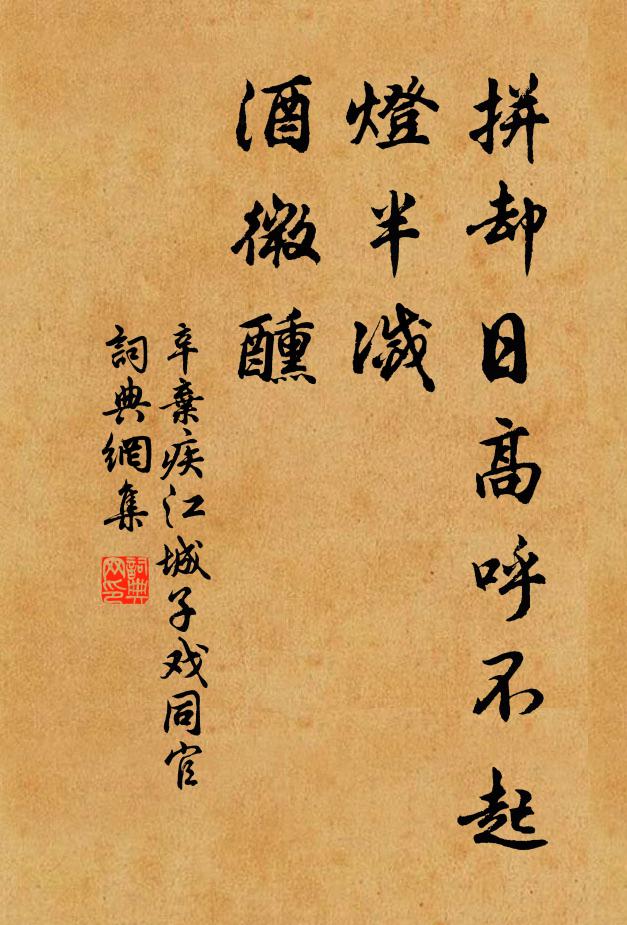 拼却日高呼不起
燈半滅
酒微醺
辛棄疾江城子戏同官
詞典網集
詞典网印